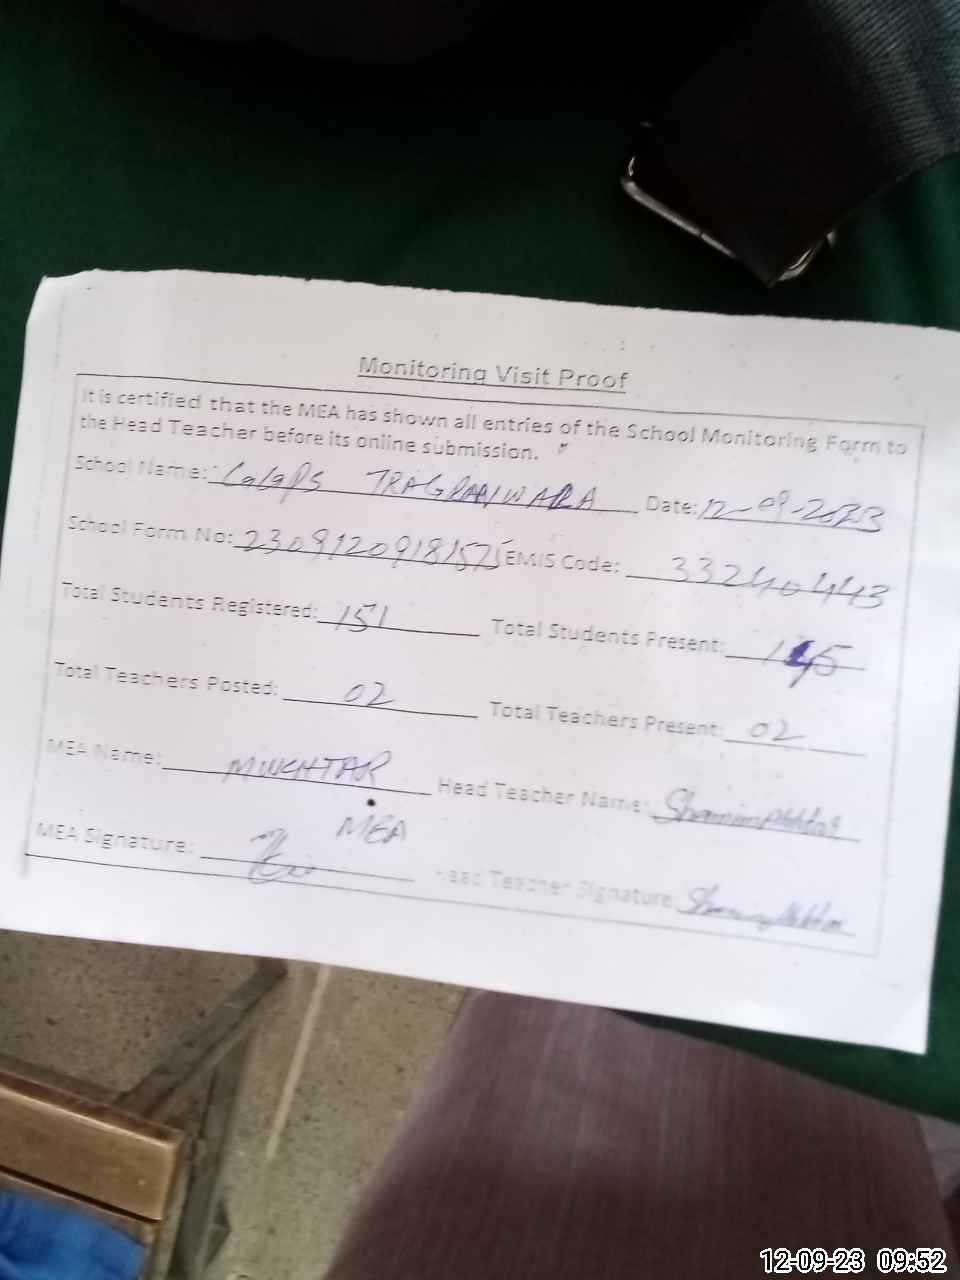 Monitoring Visit Proof
It is certified that the MEA has shown all entries of the School Monitoring Form to
the Head Teacher before its online submission.
School Name: GGPS TRAGRANWALA Date: 12-09-2023
School Form No: EMIS Code: 33240443
Total Students Registered: 151 Total Students Present:
Total Teachers Posted: 02 Total Teachers Present: 02
MEA Name: MUKHTAR Head Teacher Name: Shamim Akhtar
MEA
MEA Signature: Head Teacher Signature: Shamim Akhtar
12-09-23 09:52